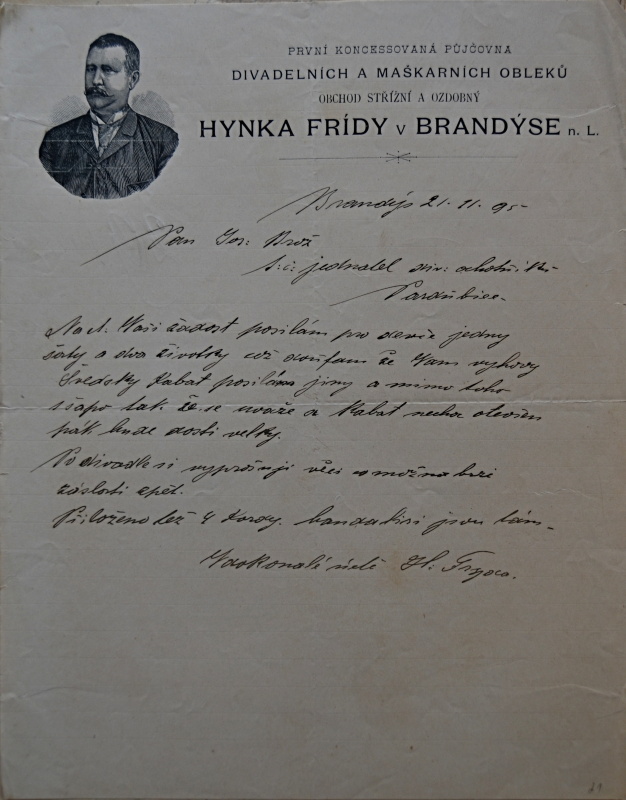 PRVNÍ KONCESSOVANÁ PŮJČOVNA
DIVADELNÍCH A MAŠKARNÍCH OBLEKŮ
OBCHOD STŘÍŽNÍ A OZDOBNÝ
HYNKA FRÍDY V BRANDÝSE n. L.
Brandýs 21. 11. 95
Pan Jos. Brož
t. č. jednatel div. ochotníků
Pardubice
Na ct. Vaši žádost posílám pro jedny
šaty a dva životky což doufám že Vám vyhovy
Švedsky Kabat posílám jiny a mimo toho
tak že se uváže a Kabat necha otevřen
pák bude dosti velky.
Po divadle si vyprošuji věci možna brzi
zpět.
Přiloženo též 4 Kordy. jsou tám
V dokonalé úctě H. Fryda.